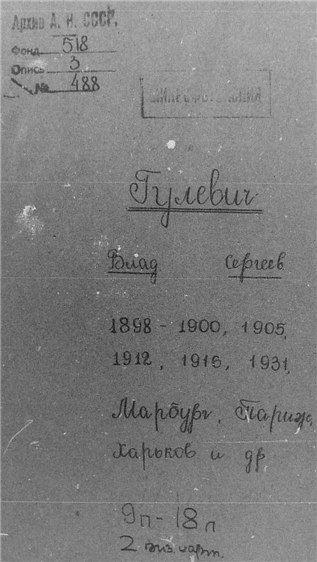 Архив А. Н. СССР.
Фонд 518
Опись 3
№ 488
Гулевич
Влад Сергеев
1898 - 1900, 1905,
1912, 1915, 1931,
Марбург, Париж,
Харьков и др
9п - 18л
2 виз. карт.